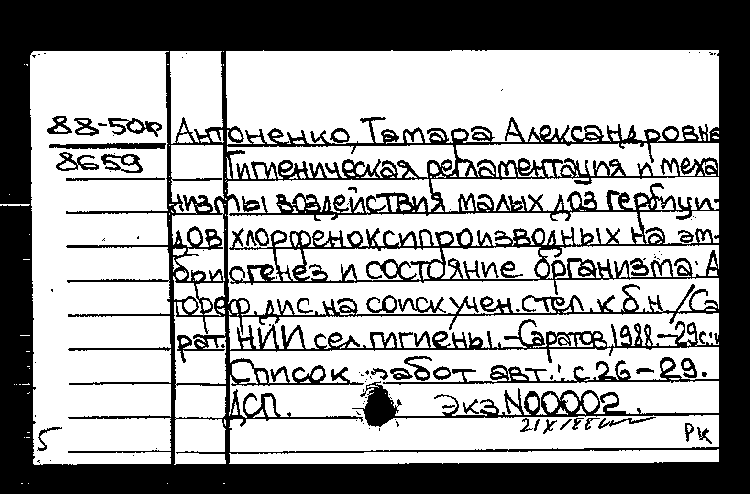 88-50р Антоненко, Тамара Александровна
8659 Гигиеническая регламентация и меха
низмы воздействия малых доз гербици-
дов хлорфеноксипроизводных на эм-
бриогенез и состояние организма: А
тореф. дис. на соиск учен. степ. к.б.н. /Са
рат. НИИ сел. гигиены. - Саратов, 1988. - 29с.:и
Список работ авт.: с.26-29.
ДСП. Экз.N00002.
РК
5